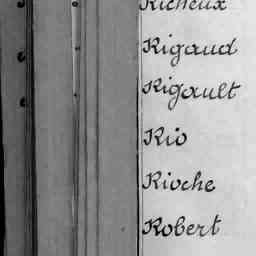 Richeux
Rigaud
Rigault
Rio
Rioche
Robert